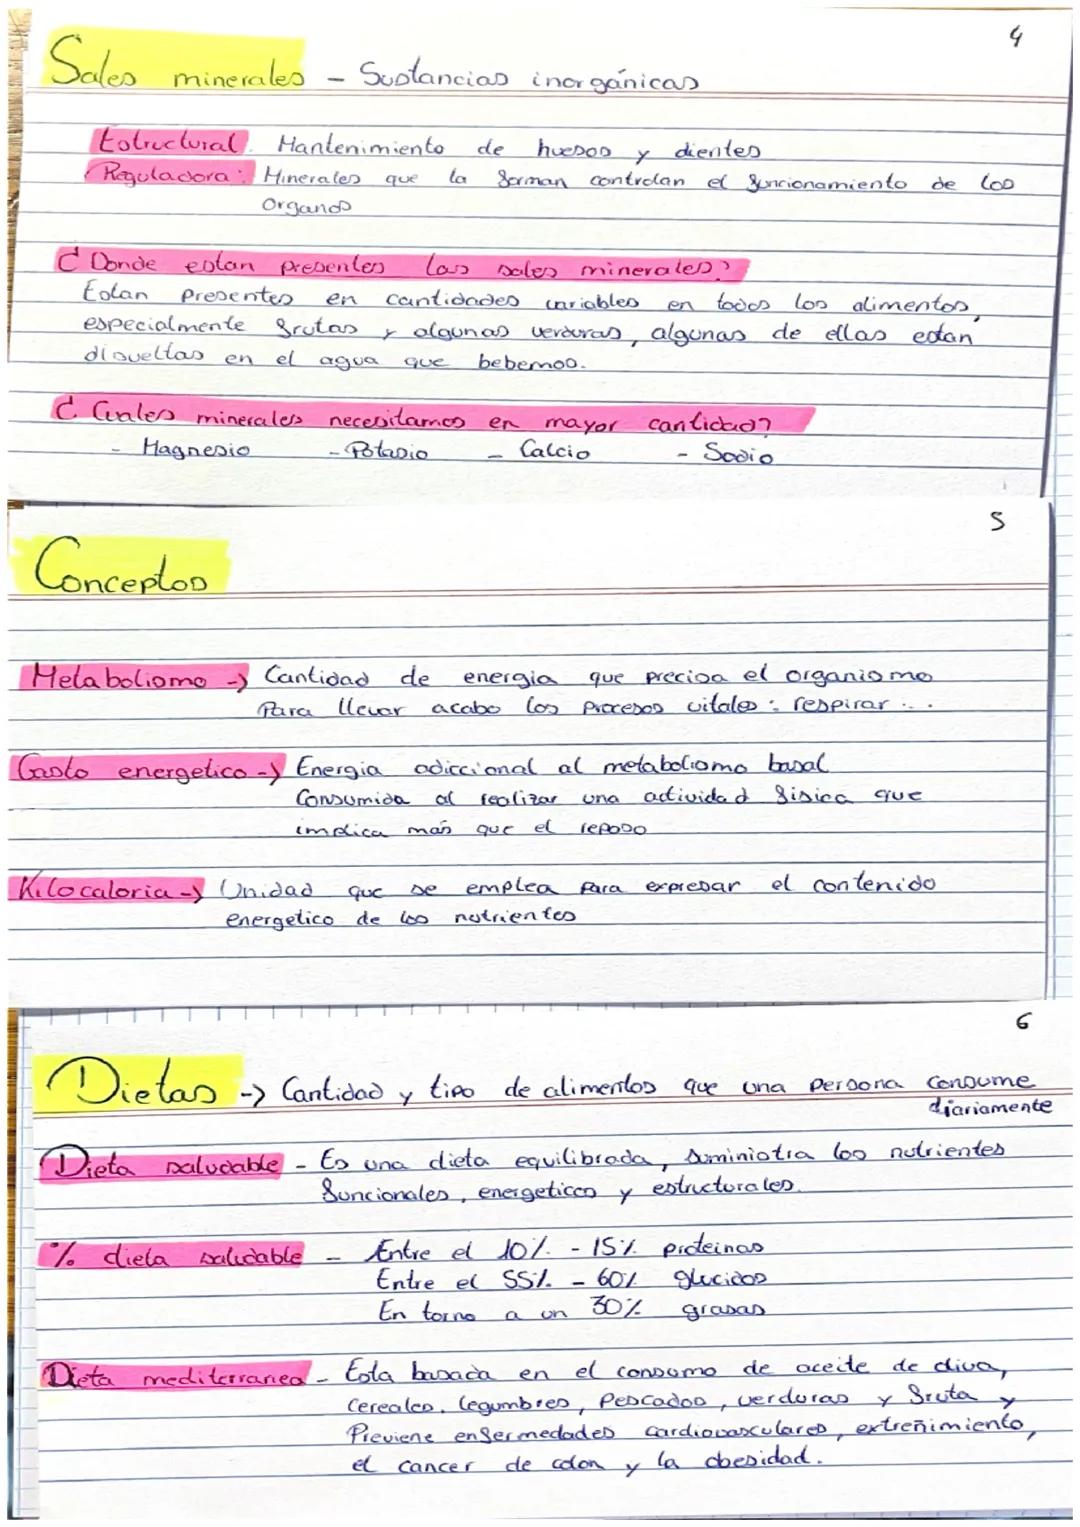 4
Sales minerales - Sustancias inorgánicas
Estructural. Mantenimiento de huesos y dientes
Reguladora: Minerales que la forman controlan el funcionamiento de los
Organos
¿Donde estan presentes las sales minerales?
Estan presentes en cantidades variables en todos los alimentos,
especialmente frutas y algunas verduras, algunas de ellas estan
disueltas en el agua que bebemos.
¿Cuales minerales necesitamos en mayor cantidad?
- Magnesio - Potasio - Calcio - Sodio
5
Conceptos
Metabolismo -> Cantidad de energia que precisa el organismo
Para llevar acabo los procesos vitales: respirar...
Gasto energetico -> Energia adiccional al metabolismo basal
Consumida al realizar una actividad fisica que
implica más que el reposo
Kilocaloria -> Unidad que se emplea para expresar el contenido
energetico de los nutrientes
6
Dietas -> Cantidad y tipo de alimentos que una persona consume
diariamente
Dieta saludable - Es una dieta equilibrada, suministra los nutrientes
funcionales, energeticos y estructurales.
% dieta saludable - Entre el 10% - 15% proteinas
Entre el 55% - 60% glucidos
En torno a un 30% grasas
Dieta mediterranea - Esta basada en el consumo de aceite de oliva,
cereales, legumbres, Pescados, verduras y fruta y
Previene enfermedades cardiovasculares, extreñimiento,
el cancer de colon y la obesidad.